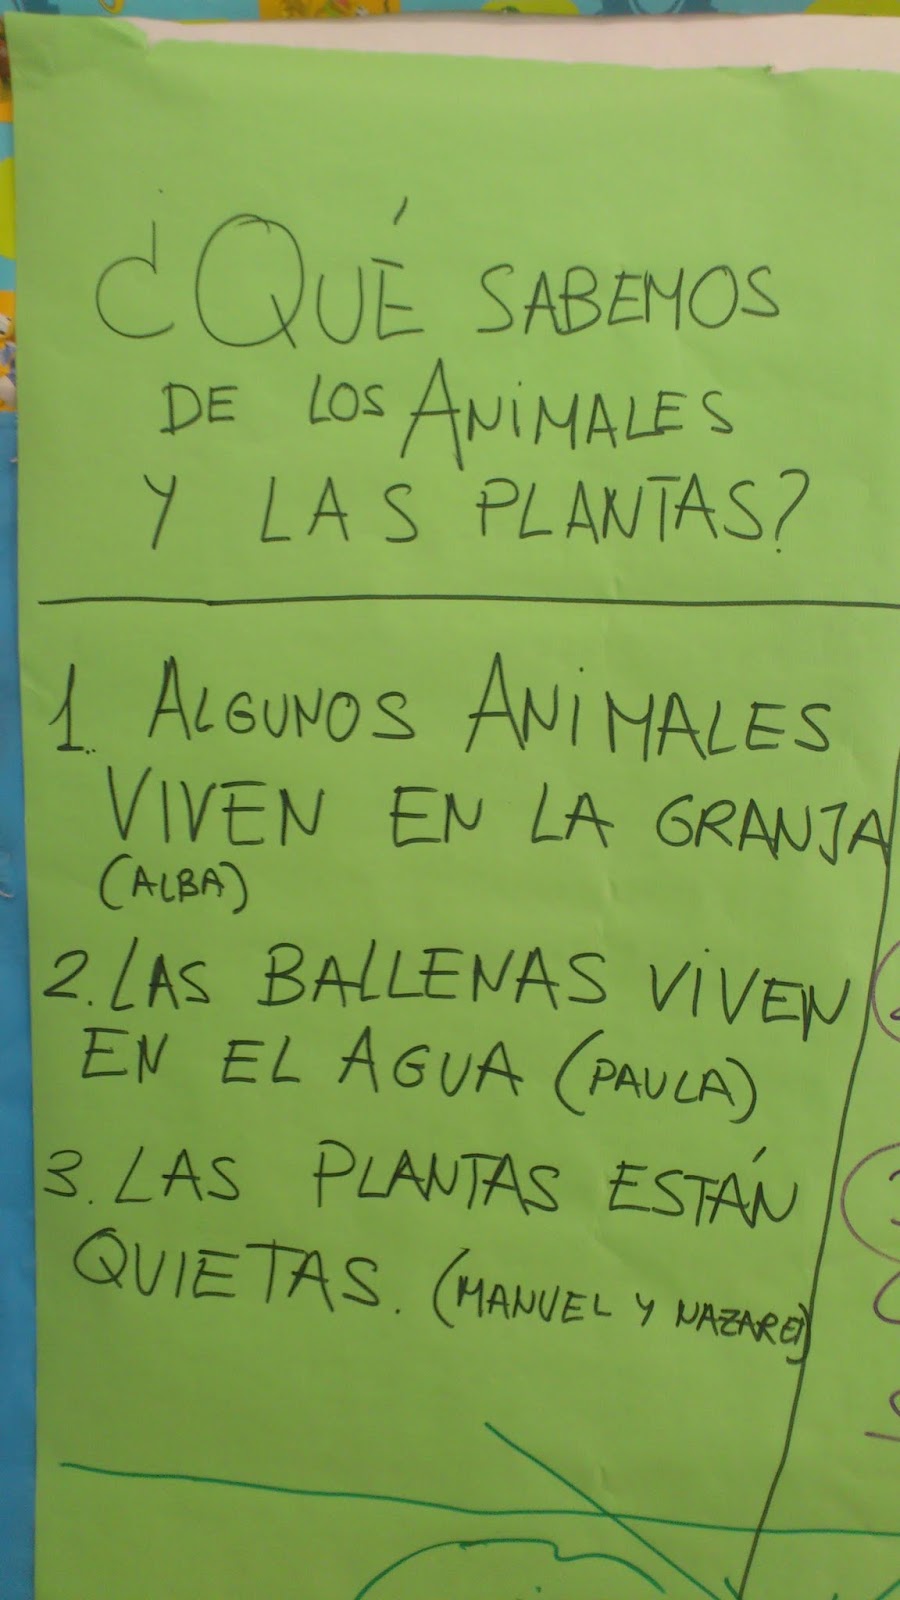 ¿QUÉ SABEMOS
DE LOS ANIMALES
Y LAS PLANTAS?
1. ALGUNOS ANIMALES
VIVEN EN LA GRANJA
(ALBA)
2. LAS BALLENAS VIVEN
EN EL AGUA (PAULA)
3. LAS PLANTAS ESTÁN
QUIETAS. (MANUEL Y NAZARET)